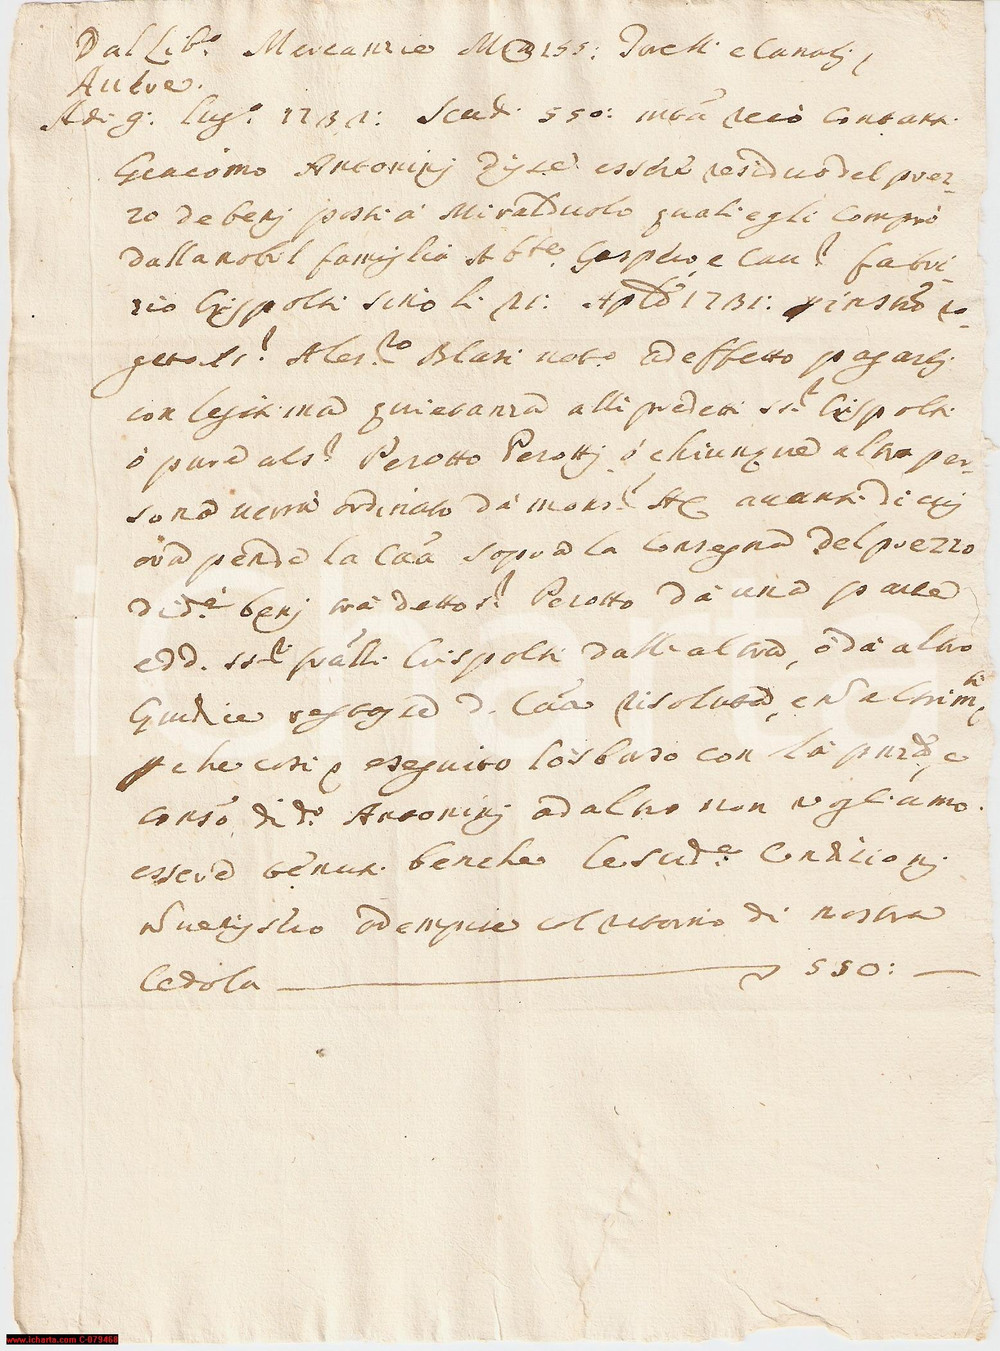 Dal Lib.o Mercanzie M 155: e Canali
Ad: 9: Lug.o 1731: Scudi 550: recò contanti
Giacomo Antoninj disse essere residuo del prez-
zo de benj posti à Miralduolo quali egli comprò
dalla nobil famiglia Abb.e Gaspero, e Cau.r Fabri-
zio Crispolti sino li 21: Aple 1731: ro-
gato Sr. Aless.ro Blasi noto. ad effetto pagarsi
con legitima quietanza alli predetti SS.ri Crispolti
ò pure al S.r Perotto Perotti, ò chiunque altra per-
sona verrà ordinato da Mons.r auanti di cuj
ora pende la Caã sopra la consegna del prezzo
di d.i benj trà detto S.r Perotto da una parte
e dd. SS.ri frãlli Crispolti dall altra, ò da altro
Giudice d. Caã risoluta, e altrim.ti
che così eseguito lo sbarso con la pnzã, e
conso di d.o Antoninj ad altro non vogliamo
essere tenuti benche le sud.e condizionj
adempite col ritorno di nostra
Cedola 550:
www.icharta.com C-079468